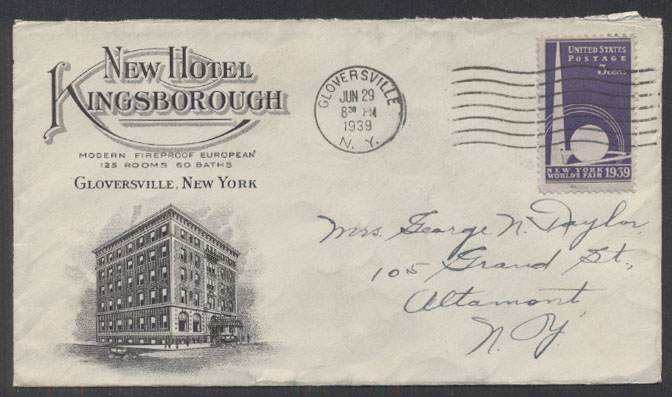 NEW HOTEL
KINGSBOROUGH
MODERN FIREPROOF EUROPEAN
125 ROOMS 60 BATHS
GLOVERSVILLE, NEW YORK
GLOVERSVILLE
JUN 29
8 30 PM
1939
N. Y.
UNITED STATES
POSTAGE
NEW YORK
WORLD'S FAIR 1939
Mrs. George N. Taylor,
105 Grand St.,
Altamont
N. Y.